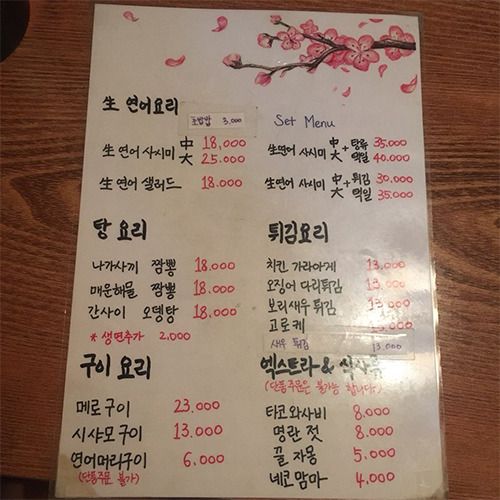 生 연어요리
초밥밥 3,000
生 연어 사시미 中 18,000
大 25.000
生 연어 샐러드 18.000
Set Menu
生연어 사시미 中 + 탕류 35.000
大 택일 40.000
生연어 사시미 中 + 튀김 30.000
大 택일 35.000
탕 요리
나가사끼 짬뽕 18.000
매운해물 짬뽕 18.000
간사이 오뎅탕 18.000
* 생면추가 2,000
튀김요리
치킨 가라아게 13.000
오징어 다리튀김 13.000
보리새우 튀김 13.000
고로케
새우 튀김 13.000
구이 요리
메로구이 23.000
시샤모구이 13.000
연어머리구이 6.000
(단품주문 불가)
엑스트라 &
(단품주문은 불가능 합니다.)
타코와사비 8.000
명란 젓 8.000
꿀 자몽 5.000
네코맘마 4,000